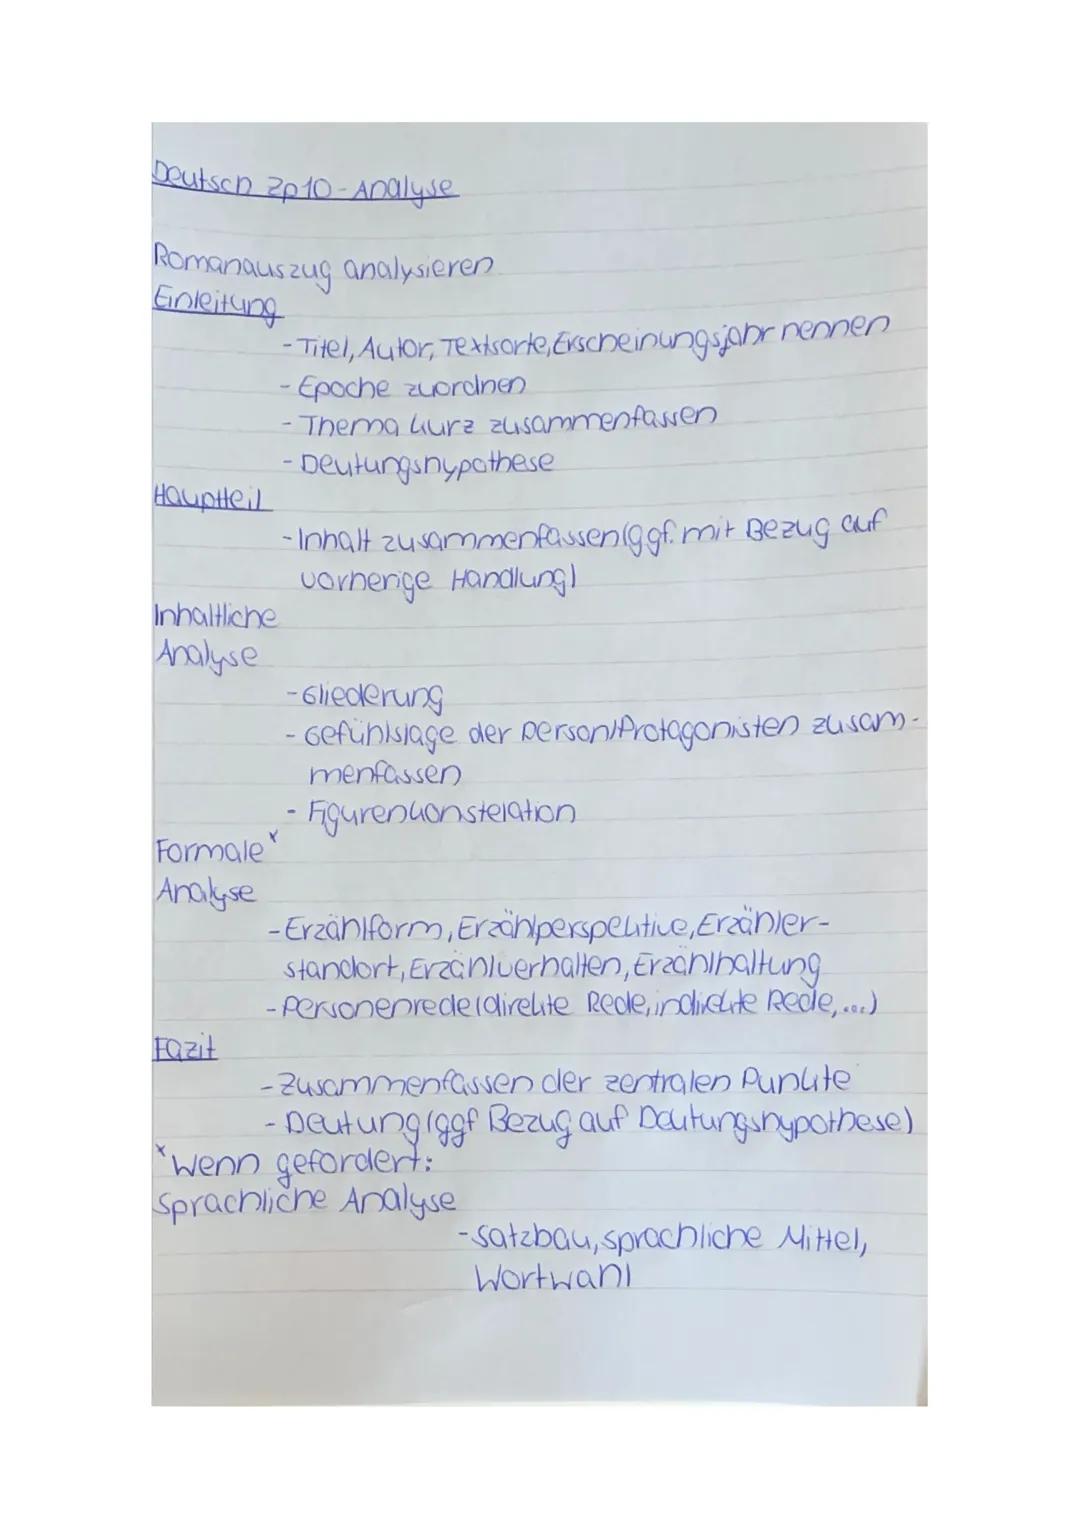 Deutsch Zp10-Analyse
Romanauszug analysieren
Einleitung
-Titel, Autor, Textsorte, Erscheinungsjahr nennen
- Epoche zuordnen
- Thema kurz zusammenfassen
- Deutungshypothese
Hauptteil
-Inhalt zusammenfassen (ggf. mit Bezug auf
vorherige Handlung)
Inhaltliche
Analyse
-Gliederung
- Gefühlslage der Person/Protagonisten zusam-
menfassen
- Figurenkonstelation
Formale x
Analyse
-Erzählform, Erzählperspektive, Erzähler-
standort, Erzählverhalten, Erzählhaltung
-Personenrede (direkte Rede, indirekte Rede, ...)
Fazit
-Zusammenfassen der zentralen Punkte
- Deutung (ggf Bezug auf Deutungshypothese)
x Wenn gefordert:
Sprachliche Analyse
-Satzbau, sprachliche Mittel,
Wortwahl